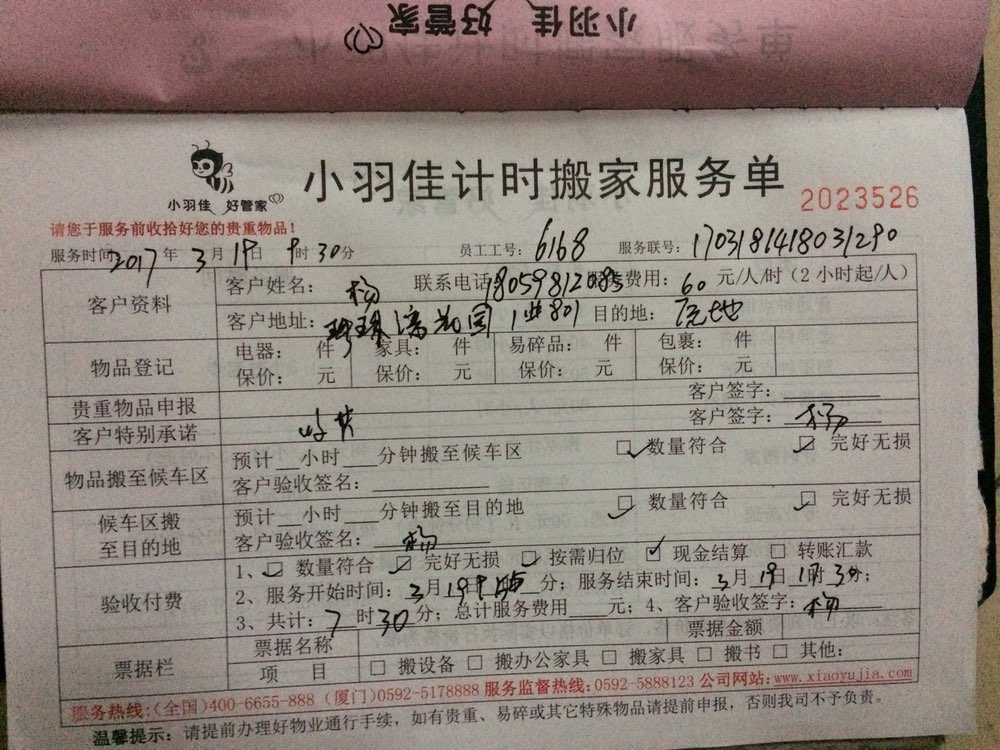 小羽佳 好管家
小羽佳 好管家
小羽佳计时搬家服务单
2023526
请您于服务前收拾好您的贵重物品!
服务时间2017年3月19日9时30分 员工工号: 6168 服务联号: 1703181418031290
客户资料 客户姓名: 杨 联系电话 服务费用: 60元/人/时(2小时起/人)
客户地址: 801 目的地:
物品登记 电器: 件 家具: 件 易碎品: 件 包裹: 件
保价: 元 保价: 元 保价: 元 保价: 元
贵重物品申报 客户签字:
客户特别承诺 客户签字: 杨
物品搬至候车区 预计__小时___分钟搬至候车区 ☑数量符合 ☑完好无损
客户验收签名:
候车区搬至目的地 预计__小时___分钟搬至目的地 ☑数量符合 ☑完好无损
客户验收签名: 杨
验收付费 1、☑数量符合 ☑完好无损 ☑按需归位 ☑现金结算 □转账汇款
2、服务开始时间: 3月19日 分; 服务结束时间: 3月19日 分;
3、共计: 7时30分; 总计服务费用___元; 4、客户验收签字: 杨
票据栏 票据名称 票据金额
项 目 □搬设备 □搬办公家具 □搬家具 □搬书 □其他:
服务热线:(全国)400-6655-888 (厦门)0592-5178888 服务监督热线:0592-5888123 公司网站:www.xiaoyujia.com
温馨提示: 请提前办理好物业通行手续,如有贵重、易碎或其它特殊物品请提前申报,否则我司不予负责。